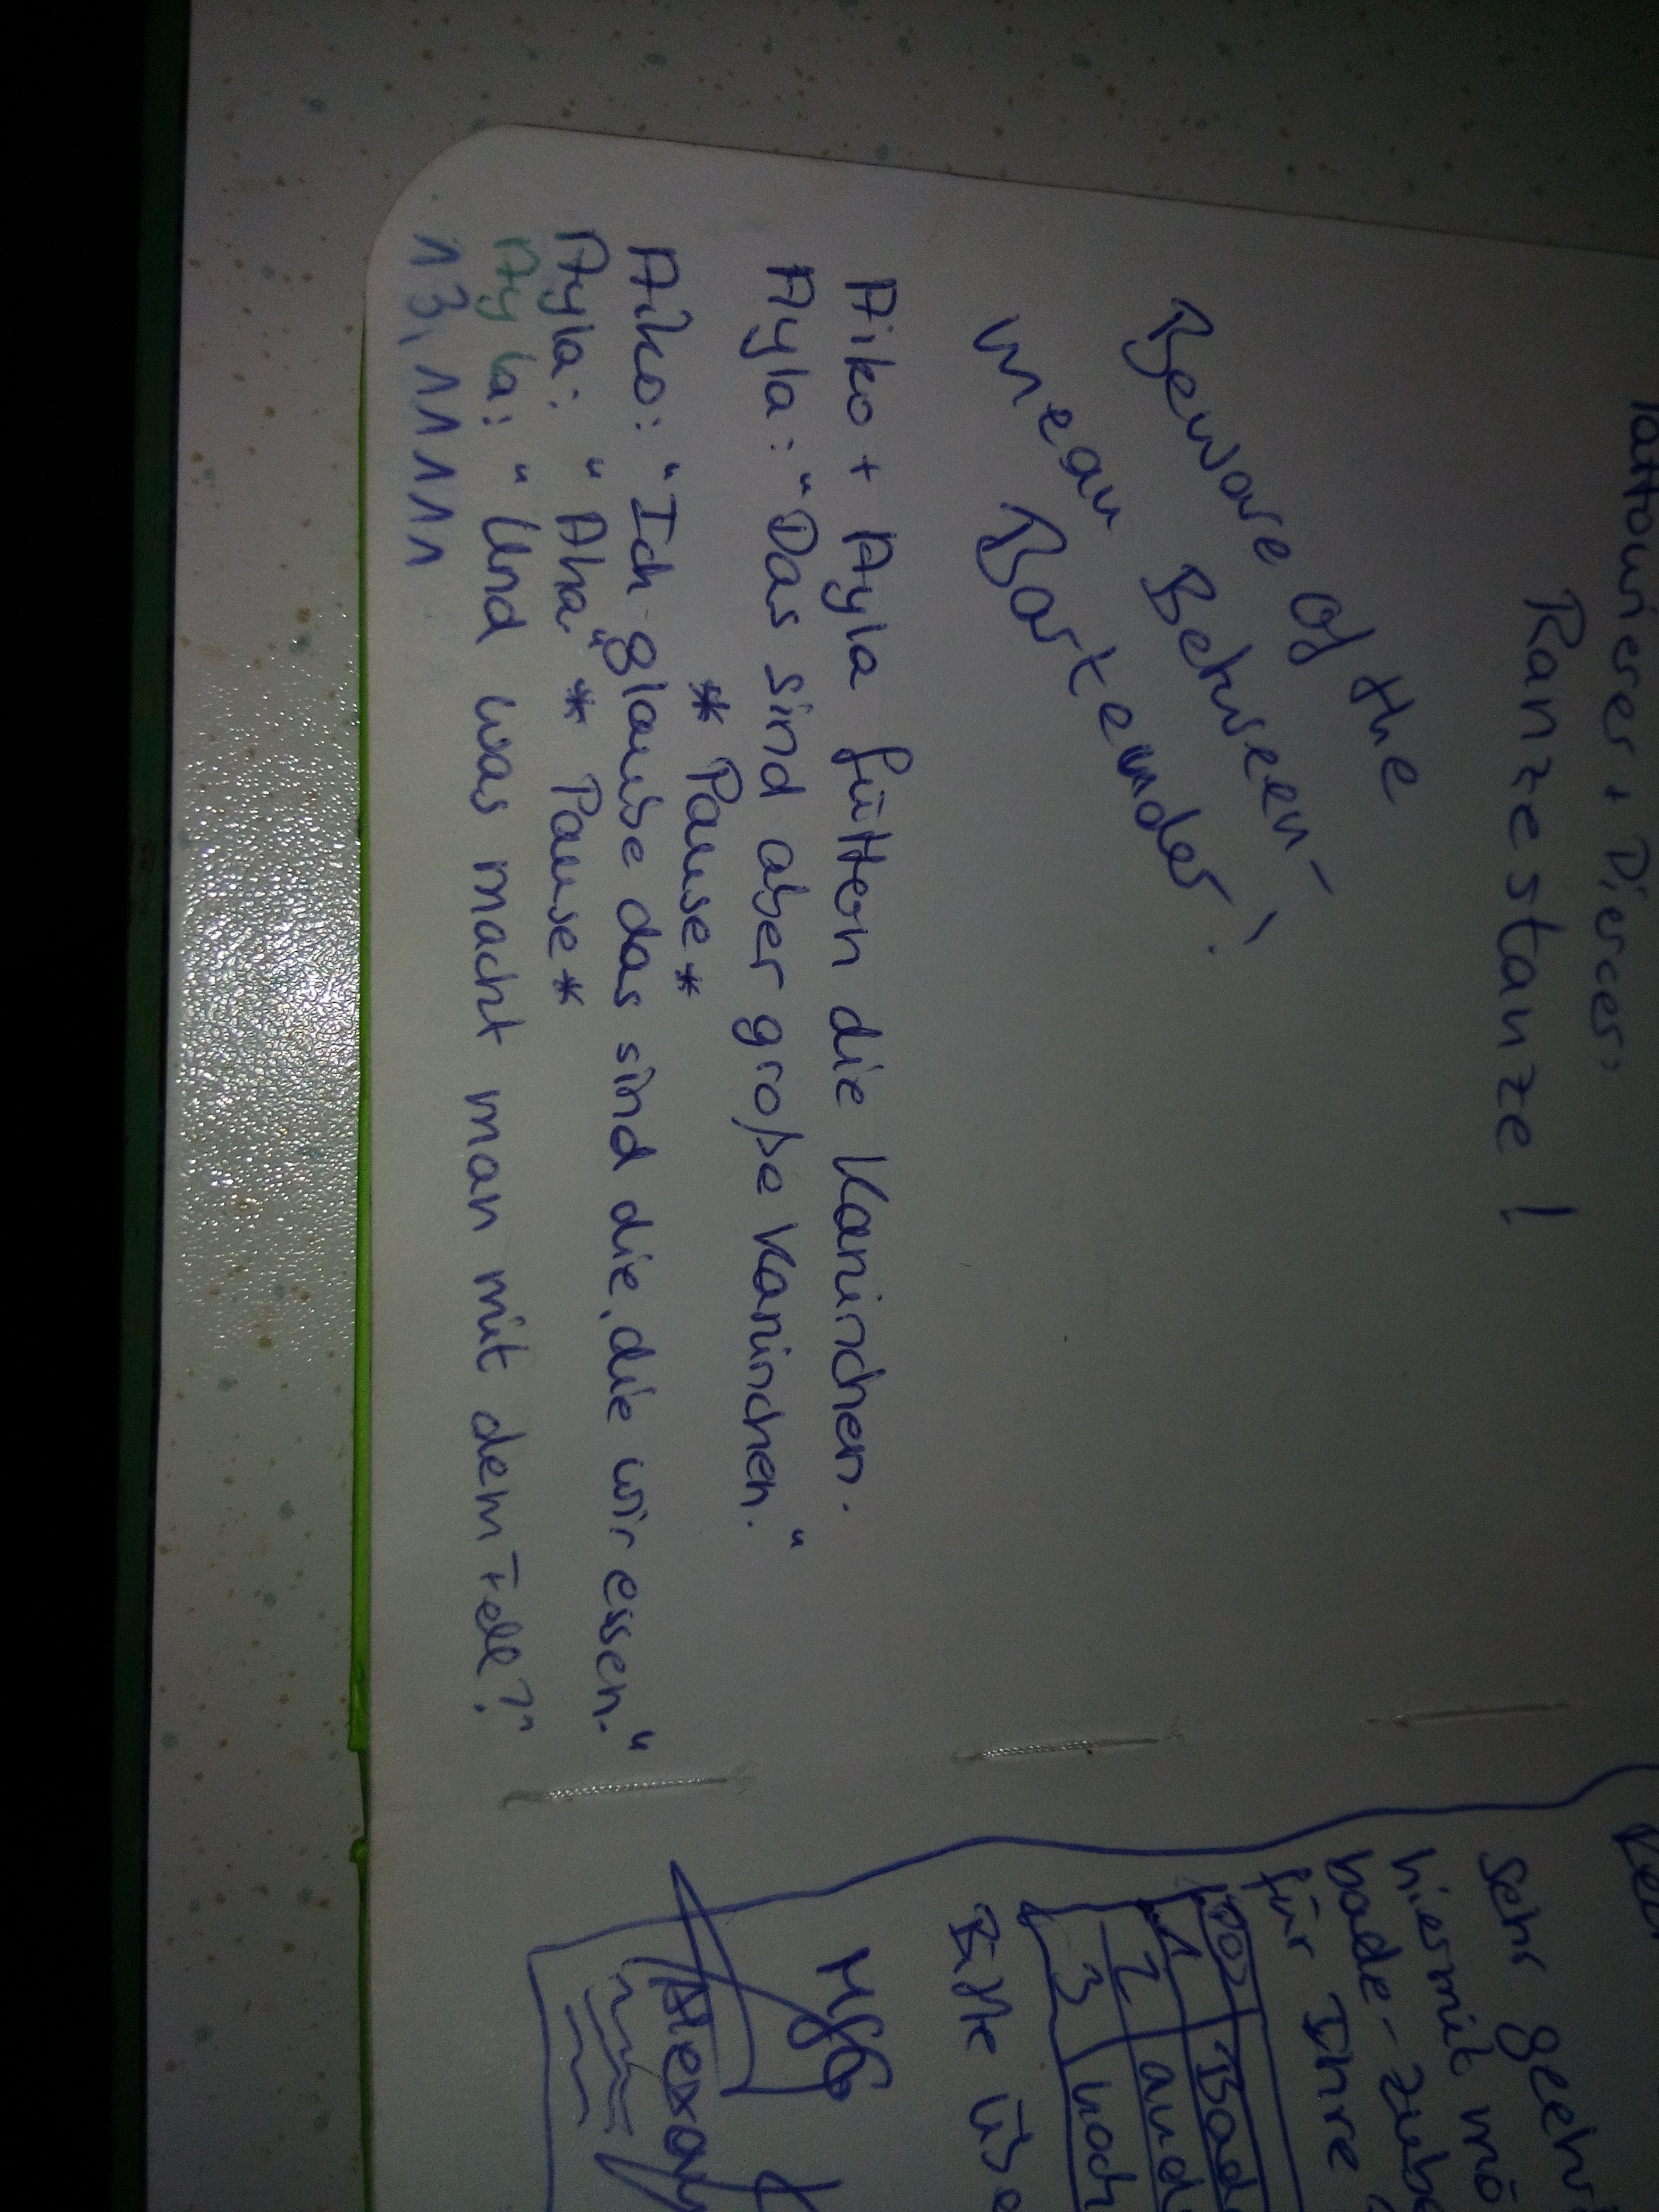 Tattowierer + Piercer"
Ranzestanze!
Beware Of the
mean Between-
Bartender!
Aiko + Ayla füttern die Kaninchen.
Ayla: "Das sind aber große Kaninchen."
* Pause *
Aiko: "Ich glaube das sind die, die wir essen."
Ayla: "Aha" * Pause *
Ayla: "Und was macht man mit dem Fell?"
13,1111
Sehr geehr
hiermit mö
bade-zube
für Ihre
POS Bad
1 and
2 noch
3
Bitte übe
MfG
Alexan